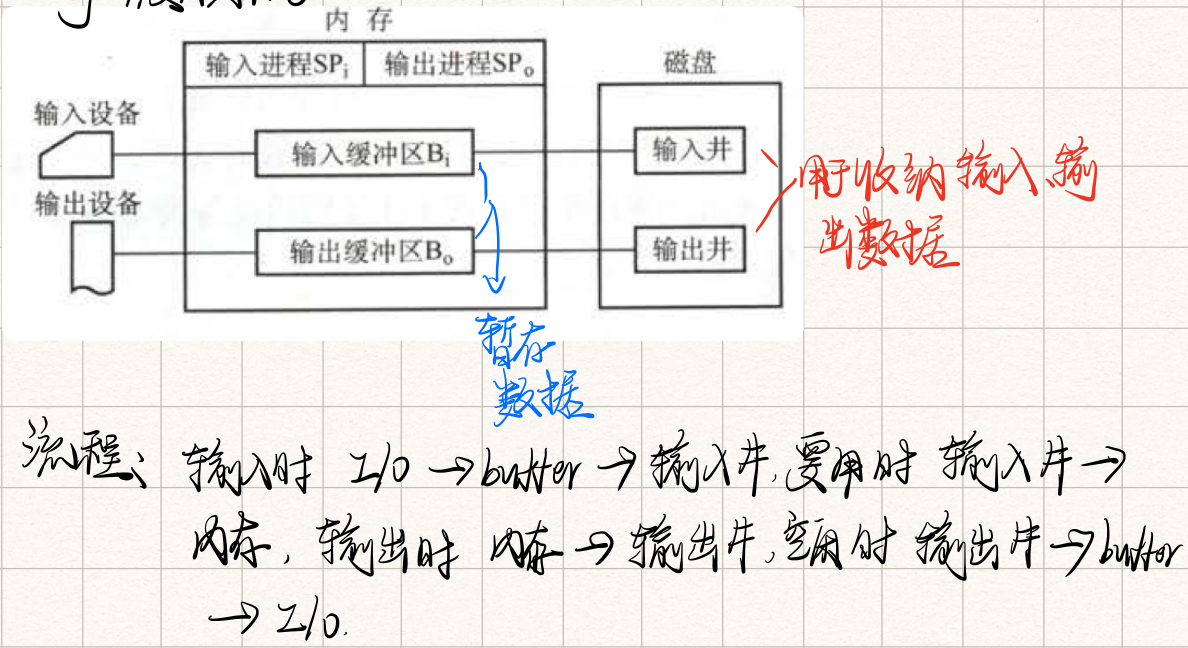 内 存
输入进程SPi 输出进程SPo
磁盘
输入设备
输入缓冲区Bi
输入井
输出设备
输出缓冲区Bo
输出井
用于收纳输入、输
出数据
暂存
数据
流程: 输入时 I/O → buffer → 输入井, 要用时 输入井 →
内存, 输出时 内存 → 输出井, 空闲时 输出井 → buffer
→ I/O.